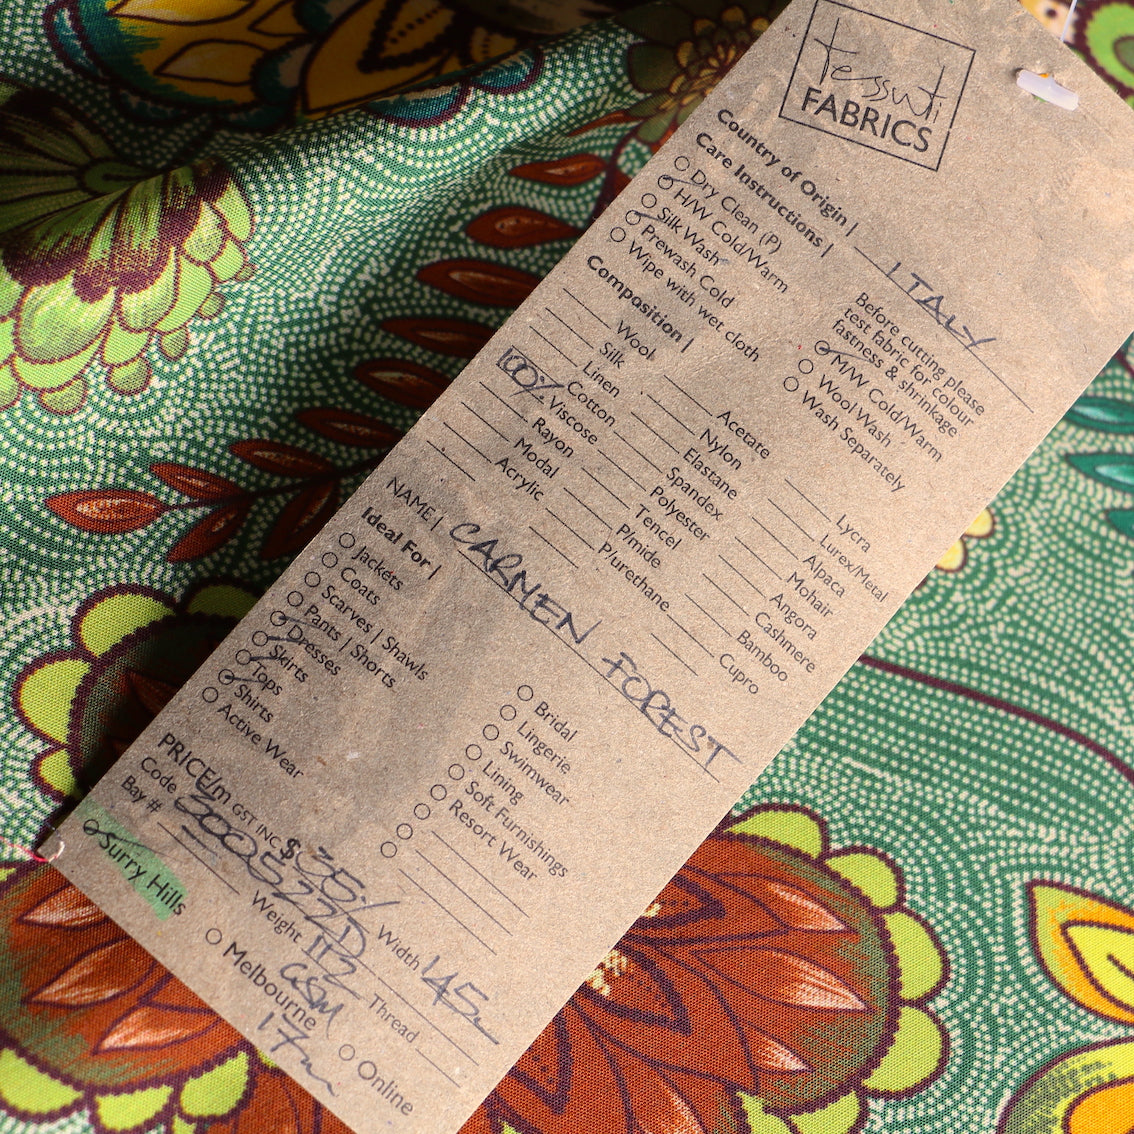 tessuti
FABRICS
Country of Origin | ITALY
Care Instructions |
Dry Clean (P)
H/W Cold/Warm
Silk Wash
Prewash Cold
Wipe with wet cloth
Before cutting please
test fabric for colour
fastness & shrinkage
M/W Cold/Warm
Wool Wash
Wash Separately
Composition |
Wool
Silk
Linen
100% Cotton
Viscose
Rayon
Modal
Acrylic
Acetate
Nylon
Elastane
Spandex
Polyester
Tencel
P/mide
P/urethane
Lycra
Lurex/Metal
Alpaca
Mohair
Angora
Cashmere
Bamboo
Cupro
NAME | CARMEN FOREST
Ideal For |
Jackets
Coats
Scarves | Shawls
Pants | Shorts
Dresses
Skirts
Tops
Shirts
Active Wear
Bridal
Lingerie
Swimwear
Lining
Soft Furnishings
Resort Wear
PRICE/m GST INC $35/
Code 3005227D Width 145
Bay # Weight 112 GSM Thread
Surry Hills
Melbourne
Online
17m